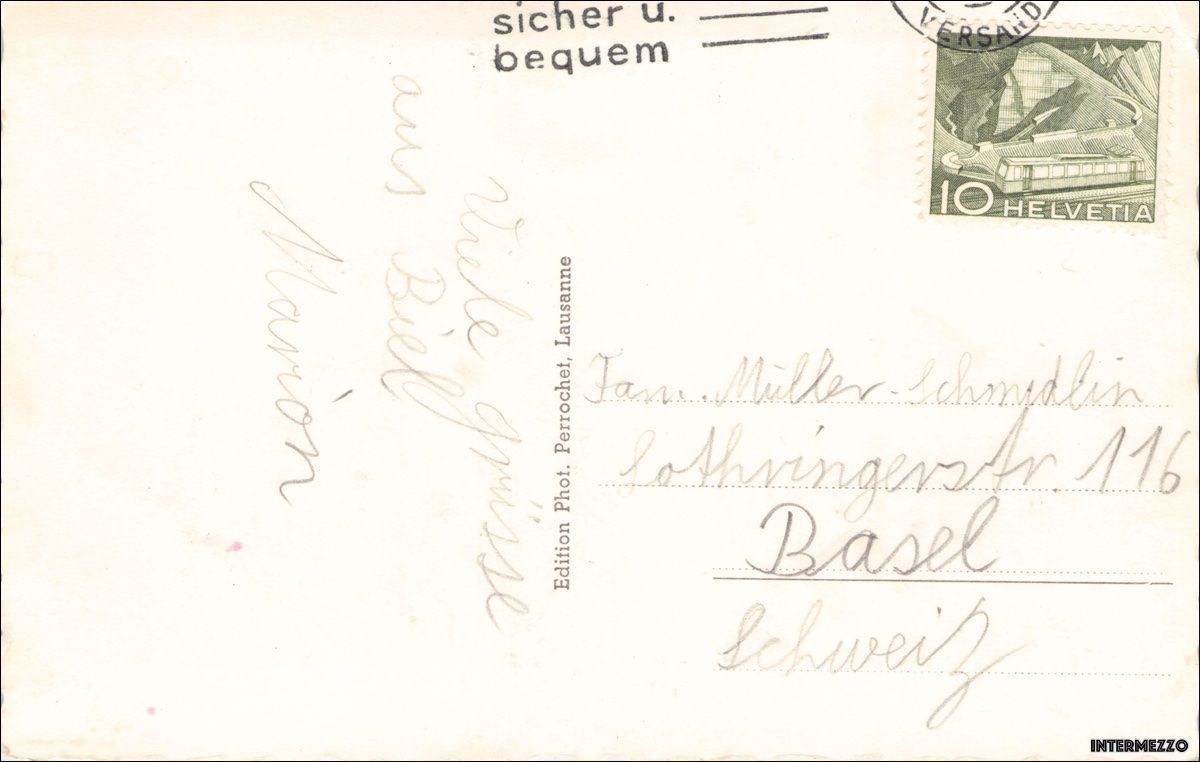 sicher u.
bequem
VERSAND
10 HELVETIA
Viele grüsse
aus Biel
Marion
Edition Phot. Perrochet, Lausanne
Fam. Müller-Schmidlin
Lothringerstr. 116
Basel
Schweiz
INTERMEZZO